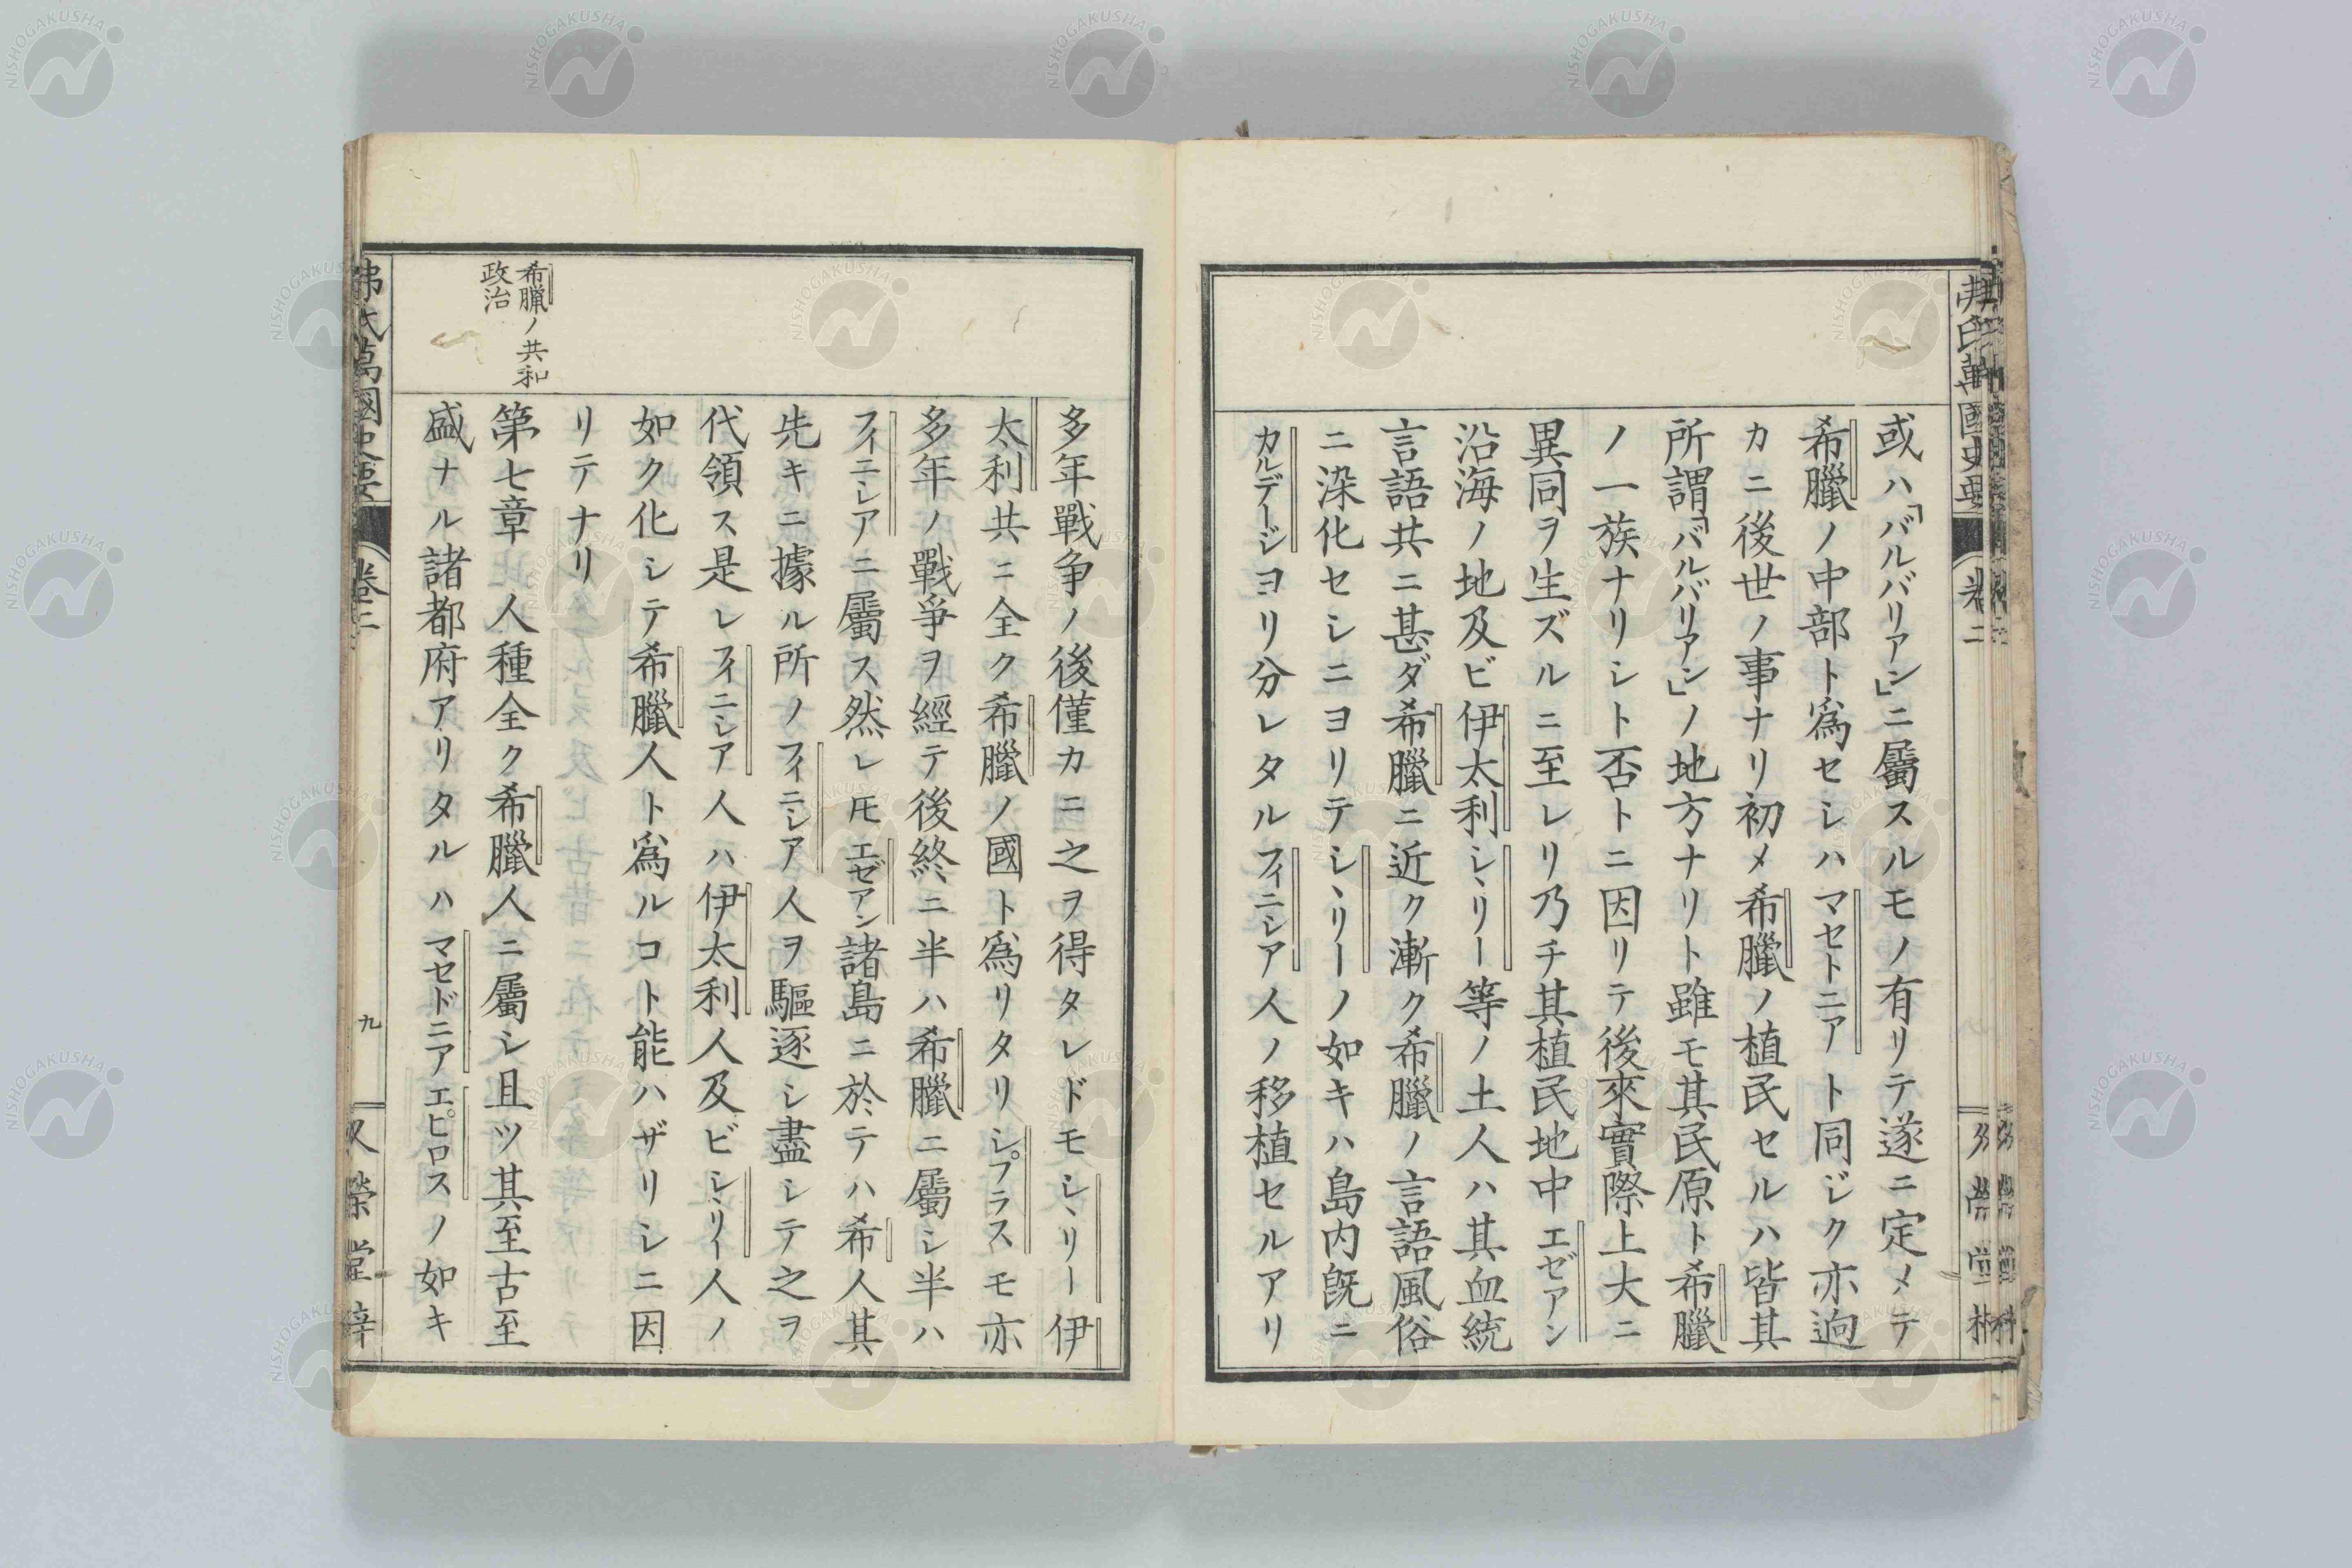 或ハ「バルバリアン」ニ屬スルモノ有リテ遂ニ定メテ
希臘ノ中部ト爲セシハマセトニアト同ジク亦逈
カニ後世ノ事ナリ初メ希臘ノ植民セルハ皆其
所謂「バルバリアン」ノ地方ナリト雖モ其民原ト希臘
ノ一族ナリシト否トニ因リテ後來實際上大ニ
異同ヲ生ズルニ至レリ乃チ其植民地中エゼアン
沿海ノ地及ビ伊太利シヽリー等ノ土人ハ其血統
言語共ニ甚ダ希臘ニ近ク漸ク希臘ノ言語風俗
ニ染化セシニヨリテシヽリーノ如キハ島内既ニ
カルデージヨリ分レタルフィニシア人ノ移植セルアリ
多年戰争ノ後僅カニ之ヲ得タレドモシヽリー伊
太利共ニ全ク希臘ノ國ト爲リタリシプラスモ亦
多年ノ戰爭ヲ經テ後終ニ半ハ希臘ニ屬シ半ハ
フィニシアニ屬ス然レ𪜈エゼアン諸島ニ於テハ希人其
先キニ據ル所ノフィニシア人ヲ驅逐シ盡シテ之ヲ
代領ス是レフィニシア人ハ伊太利人及ビシヽリー人ノ
如ク化シテ希臘人ト爲ルコト能ハザリシニ因
リテナリ
希臘ノ共和
政治
第七章 人種全ク希臘人ニ屬シ且ツ其至古至
盛ナル諸都府アリタルハマセドニアエピロスノ如キ
弗氏萬國史要
卷二
九
又榮堂梓
NISHOGAKUSHA